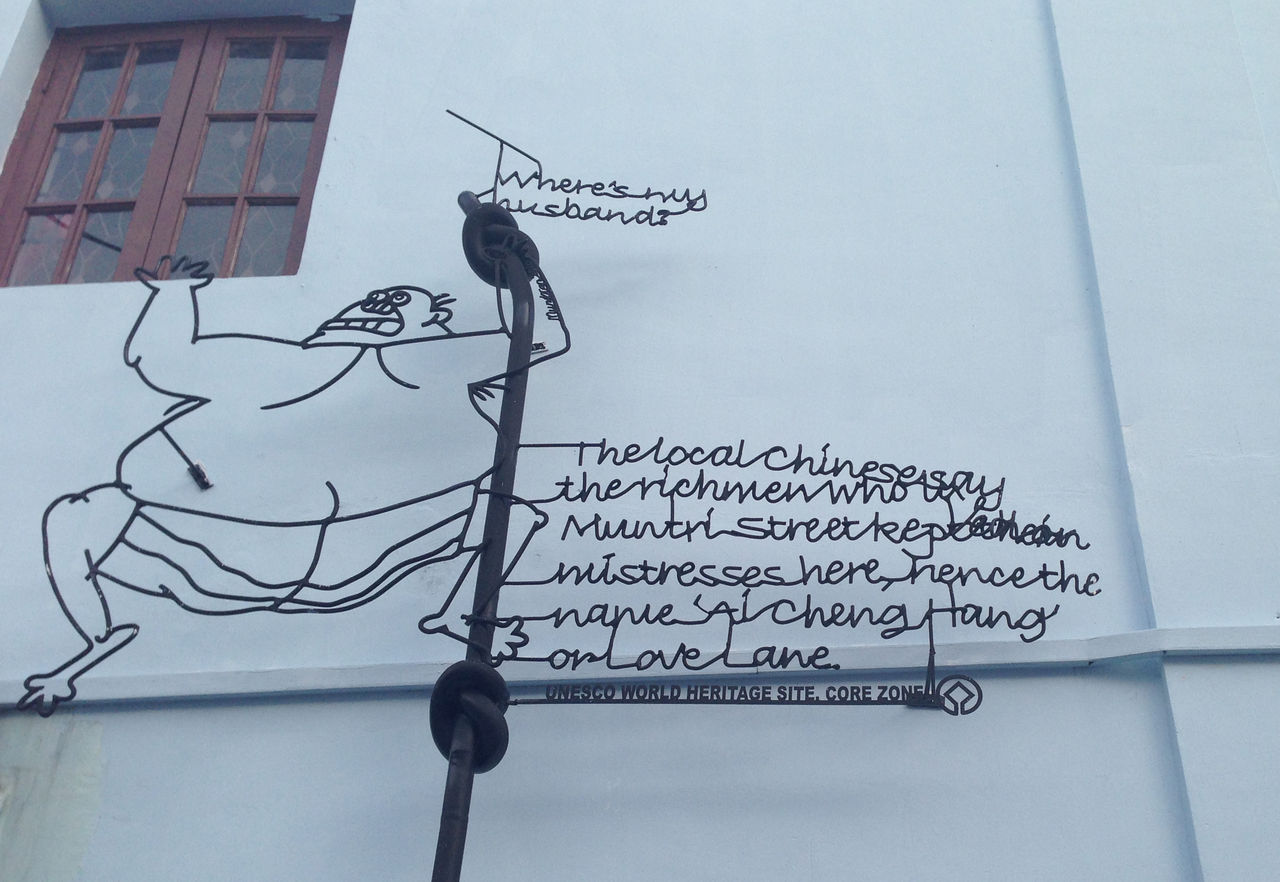 Where's my
husband?
The local Chinese say
the rich men who
Muntri Street kept their
mistresses here, hence the
name 'Ai Cheng Hang'
or Love Lane.
UNESCO WORLD HERITAGE SITE, CORE ZONE